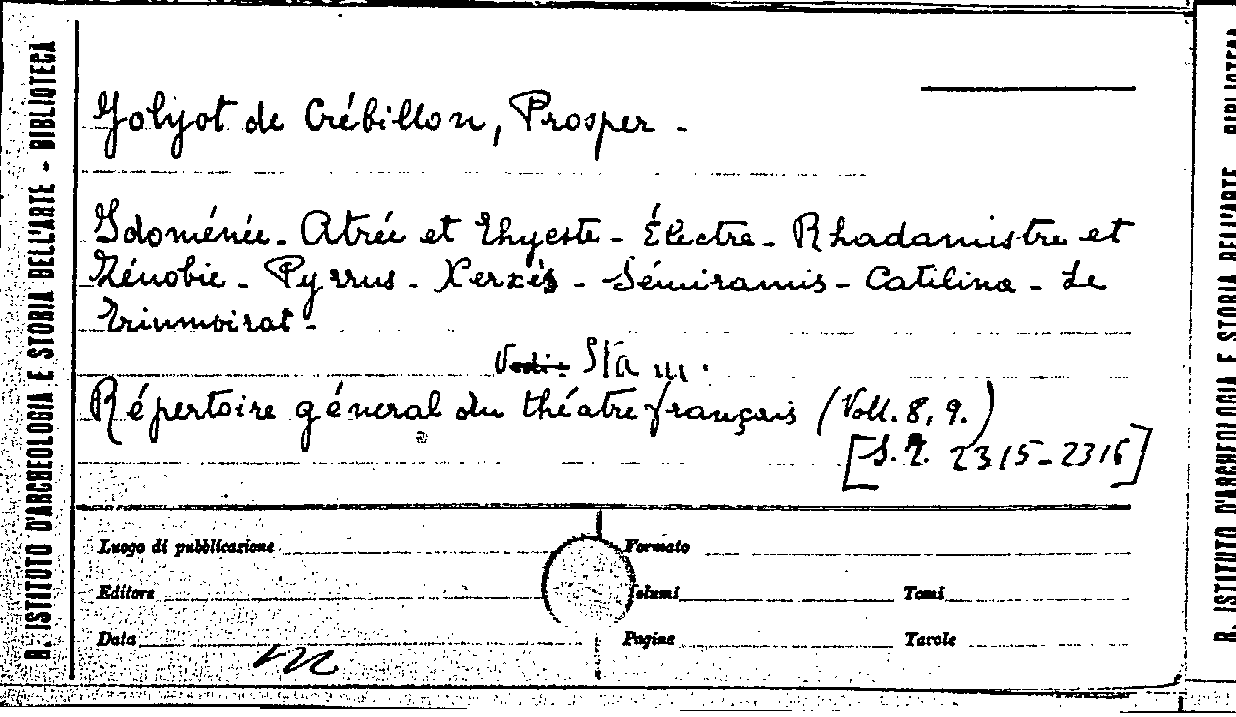 R. ISTITUTO D'ARCHEOLOGIA E STORIA DELL'ARTE - BIBLIOTECA
Jolyot de Crébillon, Prosper -
Idoménée - Atrée et Thyeste - Électre - Rhadamistre et
Zénobie - Pyrrus - Xerxès - Sémiramis - Catilina - Le
Triumvirat -
Vedi: Sta in.
Répertoire géneral du théatre français (Voll. 8, 9.)
[S. T. 2315-2316]
Luogo di pubblicazione
Formato
Editore
Volumi
Tomi
Data
Pagine
Tavole